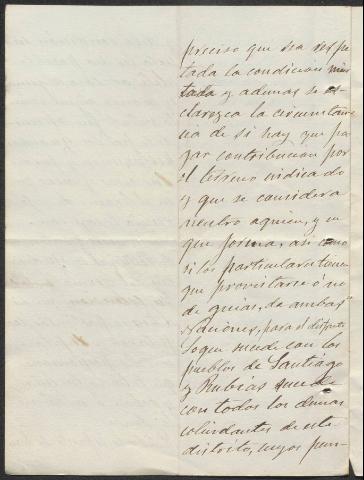 preciso que sea respe
tada la condicion nim
tada y ademas se es-
clarezca la circunstan
cia de si hay que pa
gar contribucion por
el terreno indicado
y que se considera
neutro aquien, y en
que forma, asi como
si los particulares tienen
que proveerse ó no
de guias, de ambas
Naciones, para el disfrute
Lo que sucede con los
pueblos de Santiago
y Rubias sucede
con todos los demas
colindantes de este
distrito, cuyos pun-